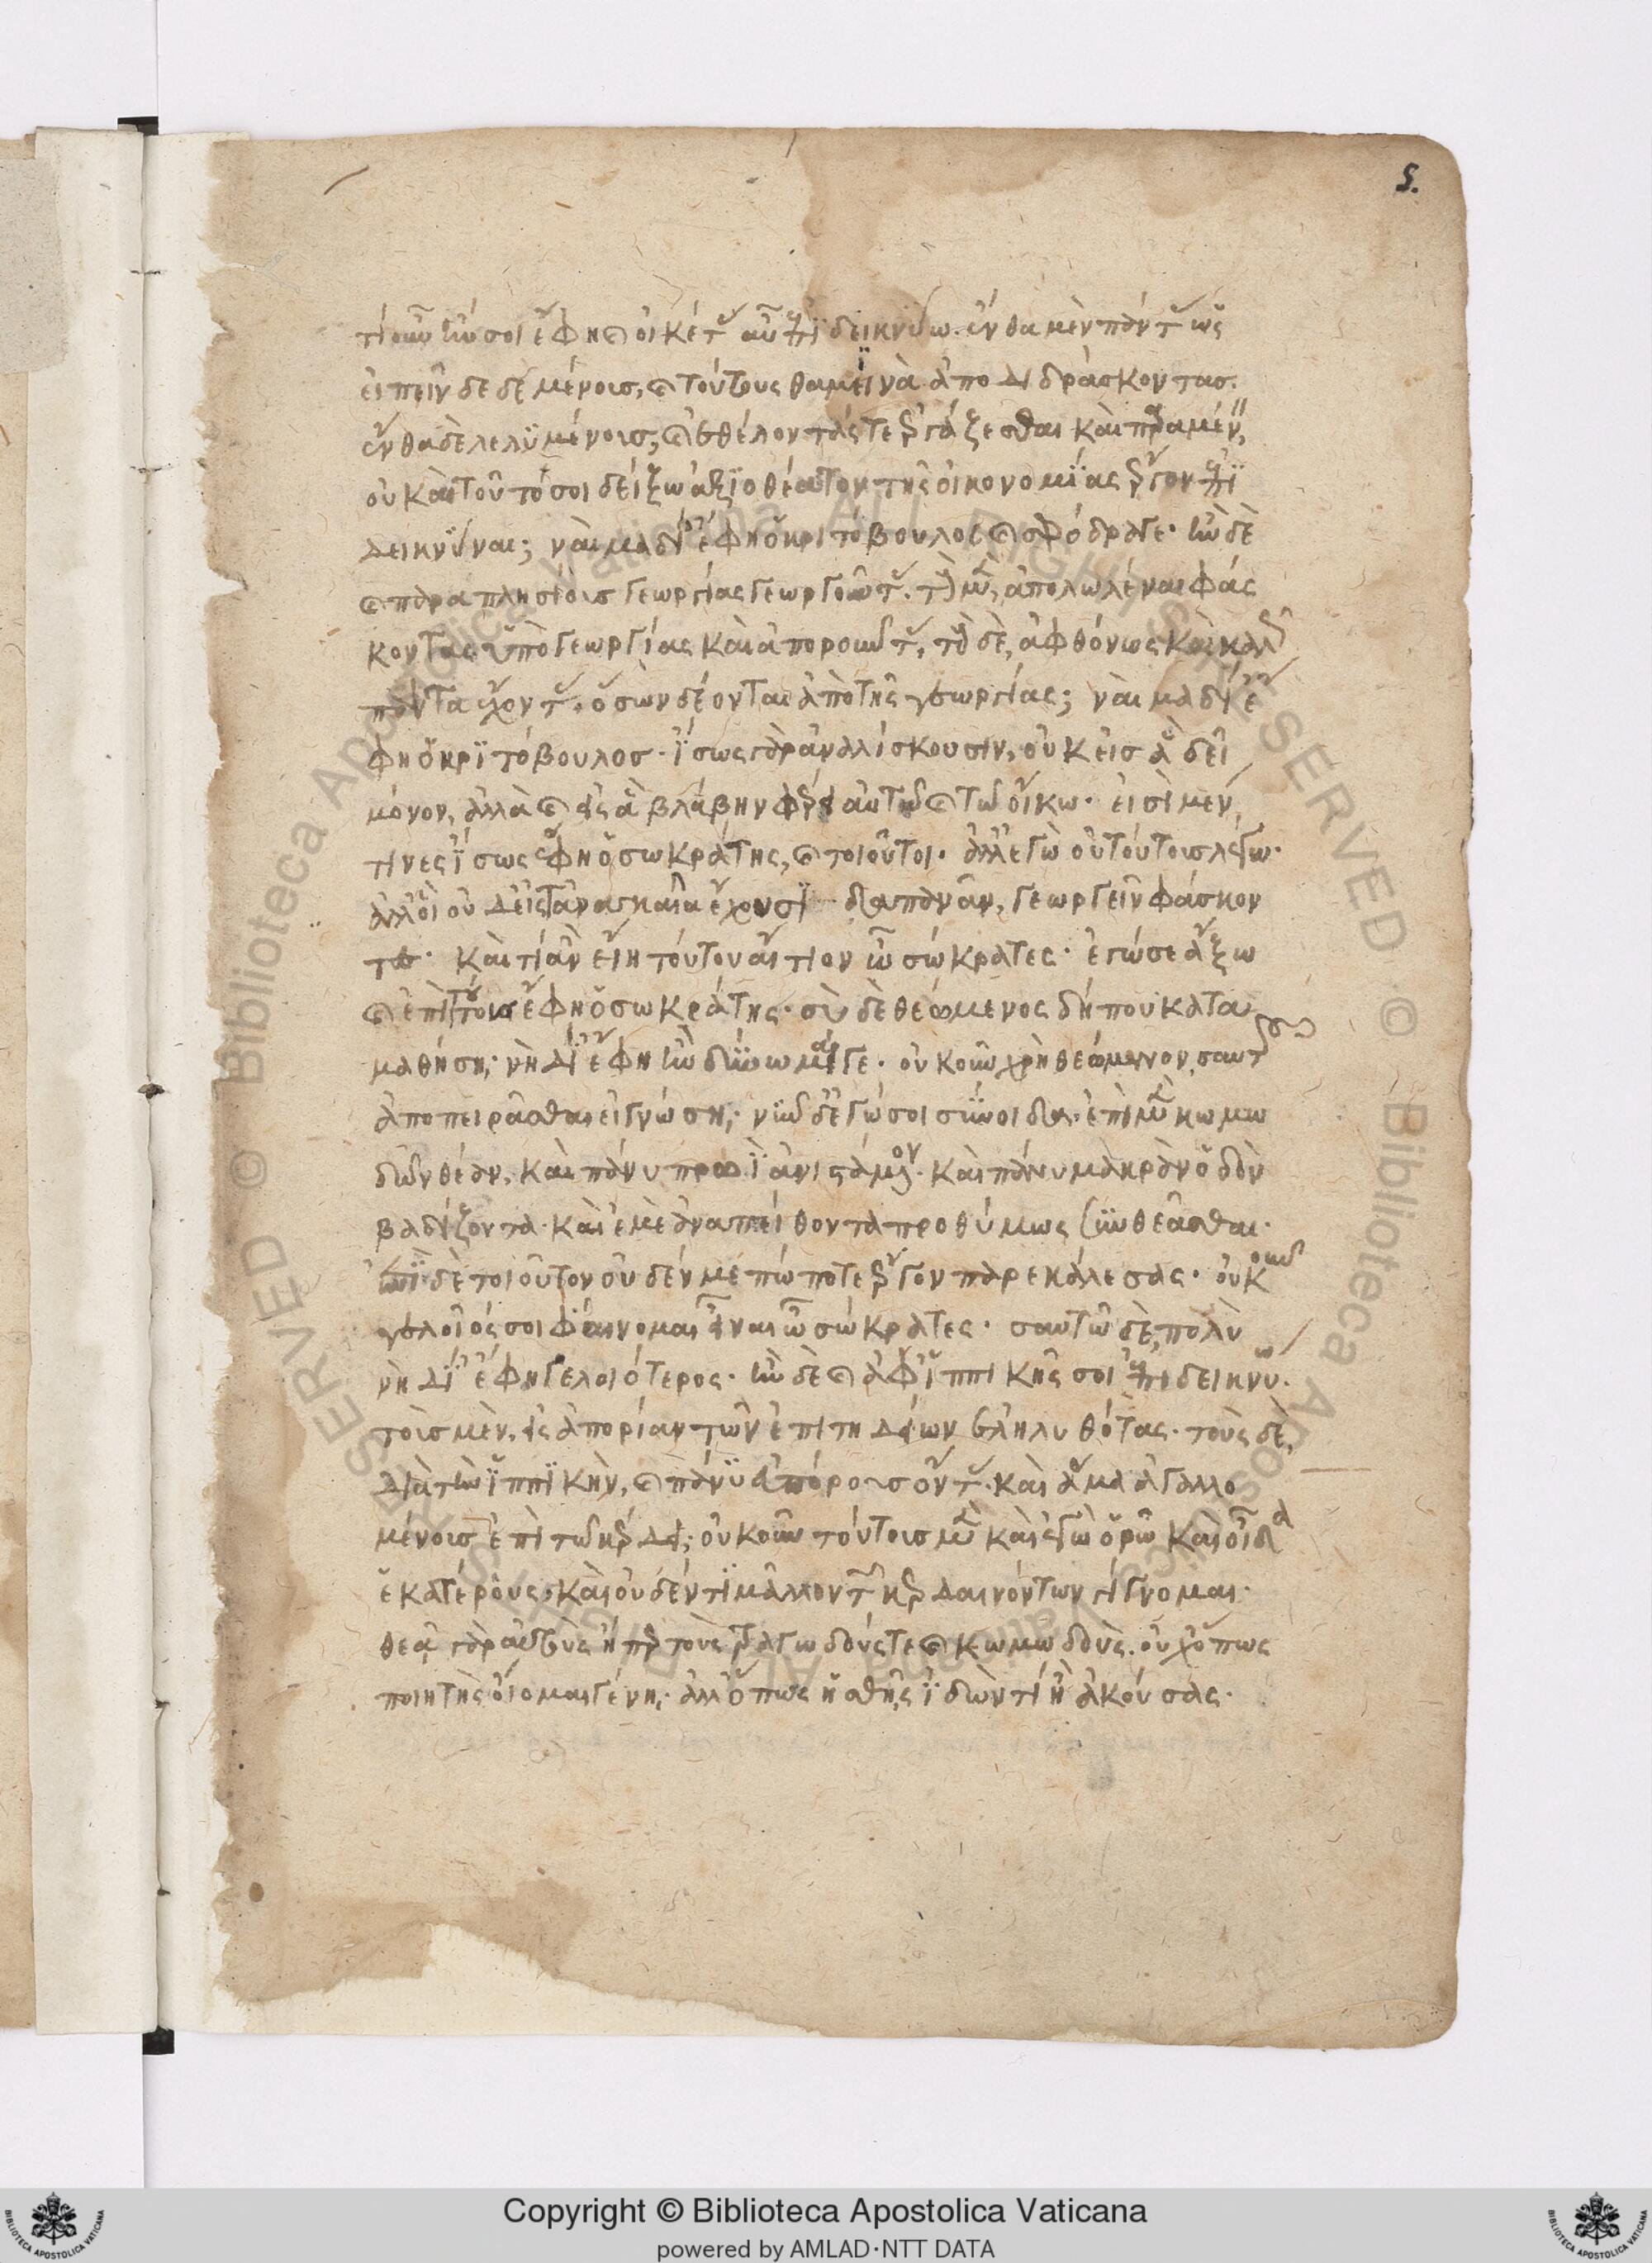 5.
τί οὖν ἤν σοι ἔφη καὶ οἰκέτας αὖ ἐπιδεικνύω ἔνθα μὲν πάντας ὡς
εἰπεῖν δεδεμένους, καὶ τούτους θαμϊνὰ ἀποδιδράσκοντας.
ἔνθα δὲ λελϋμένους, καὶ ἐθέλοντάς τε ἐργάζεσθαι καὶ παραμένειν,
οὐ καὶ τοῦτό σοι δείξω ἀξϊοθέατον τῆς οἰκονομΐας ἔργον ἐπϊ
δεικνΰναι; ναὶ μὰ δί' ἔφη ὁ κριτόβουλος καὶ σφόδρα γε· ἢν δὲ
καὶ παραπλησίους γεωργίας γεωργοῦντας. τοὺς μὲν, ἀπολωλέναι φάς
κοντας ὑπὸ γεωργίας καὶ ἀποροῦντας, τοὺς δὲ, ἀφθόνως καὶ καλῶς
πάντα ἔχοντας. ὅσων δέονται ἀπὸ τῆς γεωργίας; ναὶ μὰ δί' ἔ
φη ὁ κρϊτόβουλος· ἴσως γὰρ ἀναλίσκουσιν, οὐκ εἰς ἃ δεῖ
μόνον, ἀλλὰ καὶ εἰς ἃ βλάβην φέρει αὐτῶ καὶ τῶ οἴκω· εἰσὶ μέν,
τινες ἴσως ἔφη ὁ σωκράτης, καὶ τοιοῦτοι· ἀλλ' ἐγὼ οὐ τούτους λέγω·
ἀλλ' οἳ οὐδ' εἰς τἀναγκαῖα ἔχουσϊ δαπανᾶν, γεωργεῖν φάσκον
τες· καὶ τί ἂν εἴη τούτου αἴτιον ὦ σώκρατες· ἐγώ σε ἄξω
καὶ ἐπὶ τούτους ἔφη ὁ σωκράτης· σὺ δὲ θεώμενος δήπου κατα
μαθήση· νὴ δί' ἔφη ἢν δύνωμαί γε· οὐκοῦν χρὴ θεώμενον σαυτοῦ
ἀποπειρᾶσθαι εἰ γνώση· νῦν δ' ἐγώ σοι σύνοιδα ἐπὶ μὲν κωμω
δῶν θέαν, καὶ πάνυ πρωῒ ἀνιστάμενον· καὶ πάνυ μακρὰν ὁδὸν
βαδίζοντα· καὶ ἐμὲ ἀναπείθοντα προθύμως συνθεᾶσθαι·
ἐπὶ δὲ τοιοῦτον οὐδέν με πώποτε ἔργον παρεκάλεσας· οὐκοῦν
γελοῖός σοι φαίνομαι εἶναι ὦ σώκρατες· σαυτῶ δὲ, πολὺ
νὴ δί' ἔφη γελοιότερος· ἢν δὲ καὶ ἀφ' ἱππικῆς σοι ἐπιδεικνύω.
τοὺς μὲν, εἰς ἀπορίαν τῶν ἐπιτηδείων ἐληλυθότας· τοὺς δὲ,
διὰ τὴν ἱππϊκὴν, καὶ πάνϋ εὐπόρους ὄντας· καὶ ἅμα ἀγαλλο
μένους ἐπὶ τῶ κέρδει· οὐκοῦν τούτους μὲν καὶ ἐγὼ ὁρῶ καὶ οἶδα
ἑκατέρους· καὶ οὐδέν τι μᾶλλον τῶν κερδαινόντων γίγνομαι·
θεᾷ γὰρ αὐτοὺς ἧπερ τοὺς τραγωδούς τε καὶ κωμωδοὺς. οὐχ ὅπως
ποιητὴς οἴομαι γένη· ἀλλ' ὅπως ἡσθῆς ἰδών τι ἢ ἀκούσας·
Copyright © Biblioteca Apostolica Vaticana
powered by AMLAD·NTT DATA